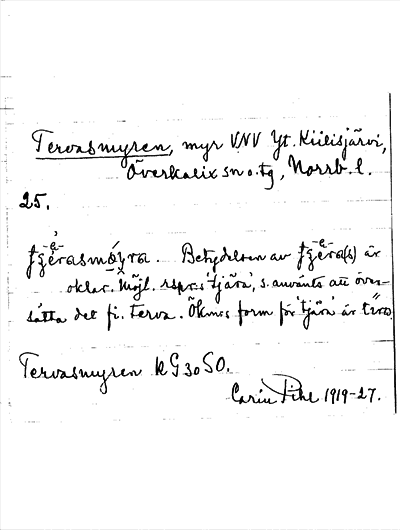 Tervasmyren, myr VNV Yt. Kiilisjärvi,
Överkalix sn o. tg, Norrb. l.
25.
Betydelsen av är
oklar. Möjl. 'tjära', s. använts att över-
sätta det fi. terva. Ökmos form för 'tjära' är
Tervasmyren KG 30 SO.
Carin Pihl 1919-27.